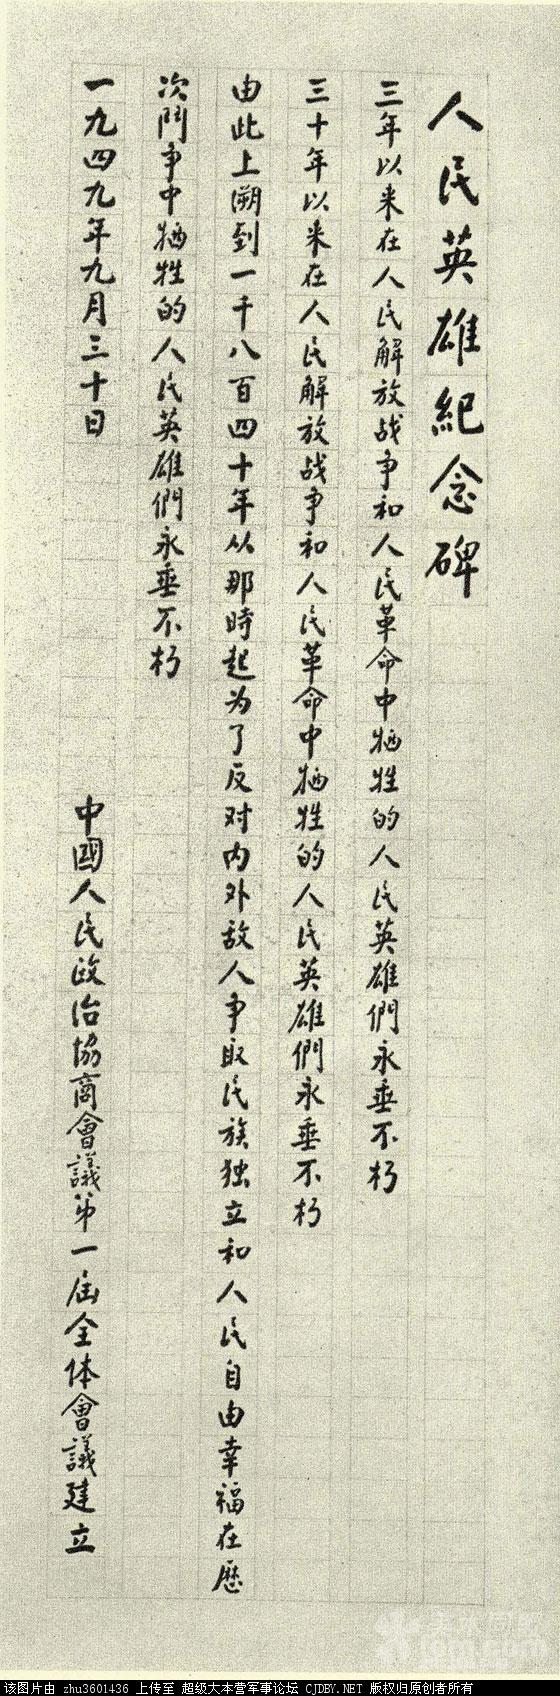 人民英雄紀念碑
三年以来在人民解放战争和人民革命中牺牲的人民英雄們永垂不朽
三十年以来在人民解放战争和人民革命中牺牲的人民英雄們永垂不朽
由此上溯到一千八百四十年从那時起为了反对内外敌人争取民族独立和人民自由幸福在歷
次鬥争中牺牲的人民英雄們永垂不朽
一九四九年九月三十日
中國人民政治協商會議第一届全体會議建立
该图片由 zhu3601436 上传至 超级大本营军事论坛 CJDBY.NET 版权归原创者所有